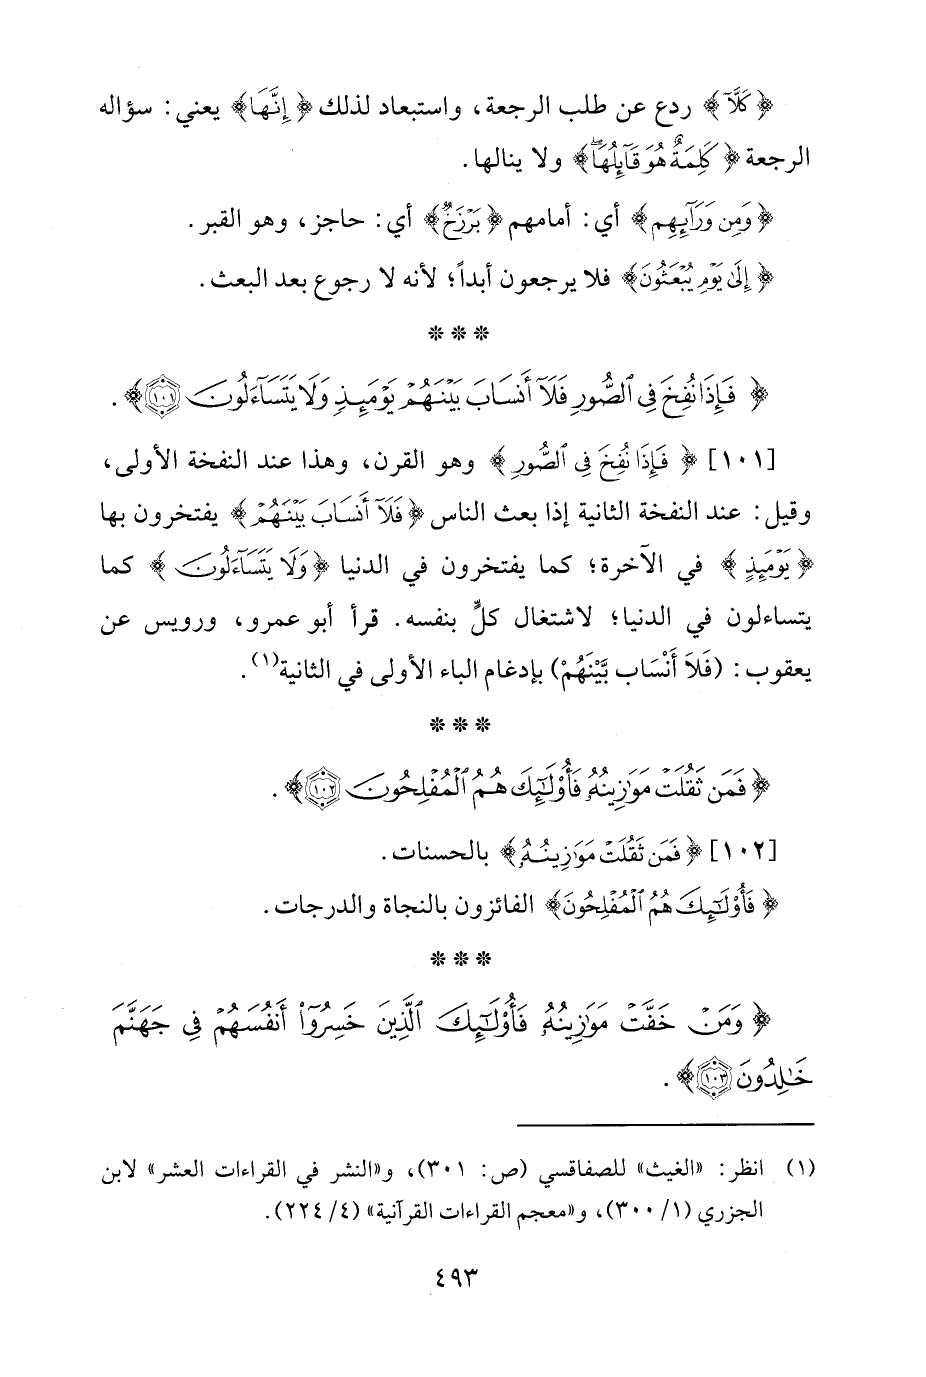 ﴿ كَلَّآ ﴾ ردع عن طلب الرجعة، واستبعاد لذلك ﴿ إِنَّهَا ﴾ يعني: سؤاله
الرجعة ﴿ كَلِمَةٌ هُوَ قَآئِلُهَا ۖ ﴾ ولا ينالها.
﴿ وَمِن وَرَآئِهِم ﴾ أي: أمامهم ﴿ بَرْزَخٌ ﴾ أي: حاجز، وهو القبر.
﴿ إِلَىٰ يَوْمِ يُبْعَثُونَ ﴾ فلا يرجعون أبداً؛ لأنه لا رجوع بعد البعث.
* * *
﴿ فَإِذَا نُفِخَ فِى ٱلصُّورِ فَلَآ أَنسَابَ بَيْنَهُمْ يَوْمَئِذٍ وَلَا يَتَسَآءَلُونَ ١٠١ ﴾.
[١٠١] ﴿ فَإِذَا نُفِخَ فِى ٱلصُّورِ ﴾ وهو القرن، وهذا عند النفخة الأولى،
وقيل: عند النفخة الثانية إذا بعث الناس ﴿ فَلَآ أَنسَابَ بَيْنَهُمْ ﴾ يفتخرون بها
﴿ يَوْمَئِذٍ ﴾ في الآخرة؛ كما يفتخرون في الدنيا ﴿ وَلَا يَتَسَآءَلُونَ ﴾ كما
يتساءلون في الدنيا؛ لاشتغال كلٍّ بنفسه. قرأ أبو عمرو، ورويس عن
يعقوب: (فَلاَ أَنْسَاب بَّيْنَهُمْ) بإدغام الباء الأولى في الثانية(١).
* * *
﴿ فَمَن ثَقُلَتْ مَوَٰزِينُهُۥ فَأُو۟لَٰٓئِكَ هُمُ ٱلْمُفْلِحُونَ ١٠٢ ﴾.
[١٠٢] ﴿ فَمَن ثَقُلَتْ مَوَٰزِينُهُۥ ﴾ بالحسنات.
﴿ فَأُو۟لَٰٓئِكَ هُمُ ٱلْمُفْلِحُونَ ﴾ الفائزون بالنجاة والدرجات.
* * *
﴿ وَمَنْ خَفَّتْ مَوَٰزِينُهُۥ فَأُو۟لَٰٓئِكَ ٱلَّذِينَ خَسِرُوٓا۟ أَنفُسَهُمْ فِى جَهَنَّمَ
خَٰلِدُونَ ١٠٣ ﴾.
(١) انظر: «الغيث» للصفاقسي (ص: ٣٠١)، و«النشر في القراءات العشر» لابن
الجزري (١/ ٣٠٠)، و«معجم القراءات القرآنية» (٤/ ٢٢٤).
٤٩٣